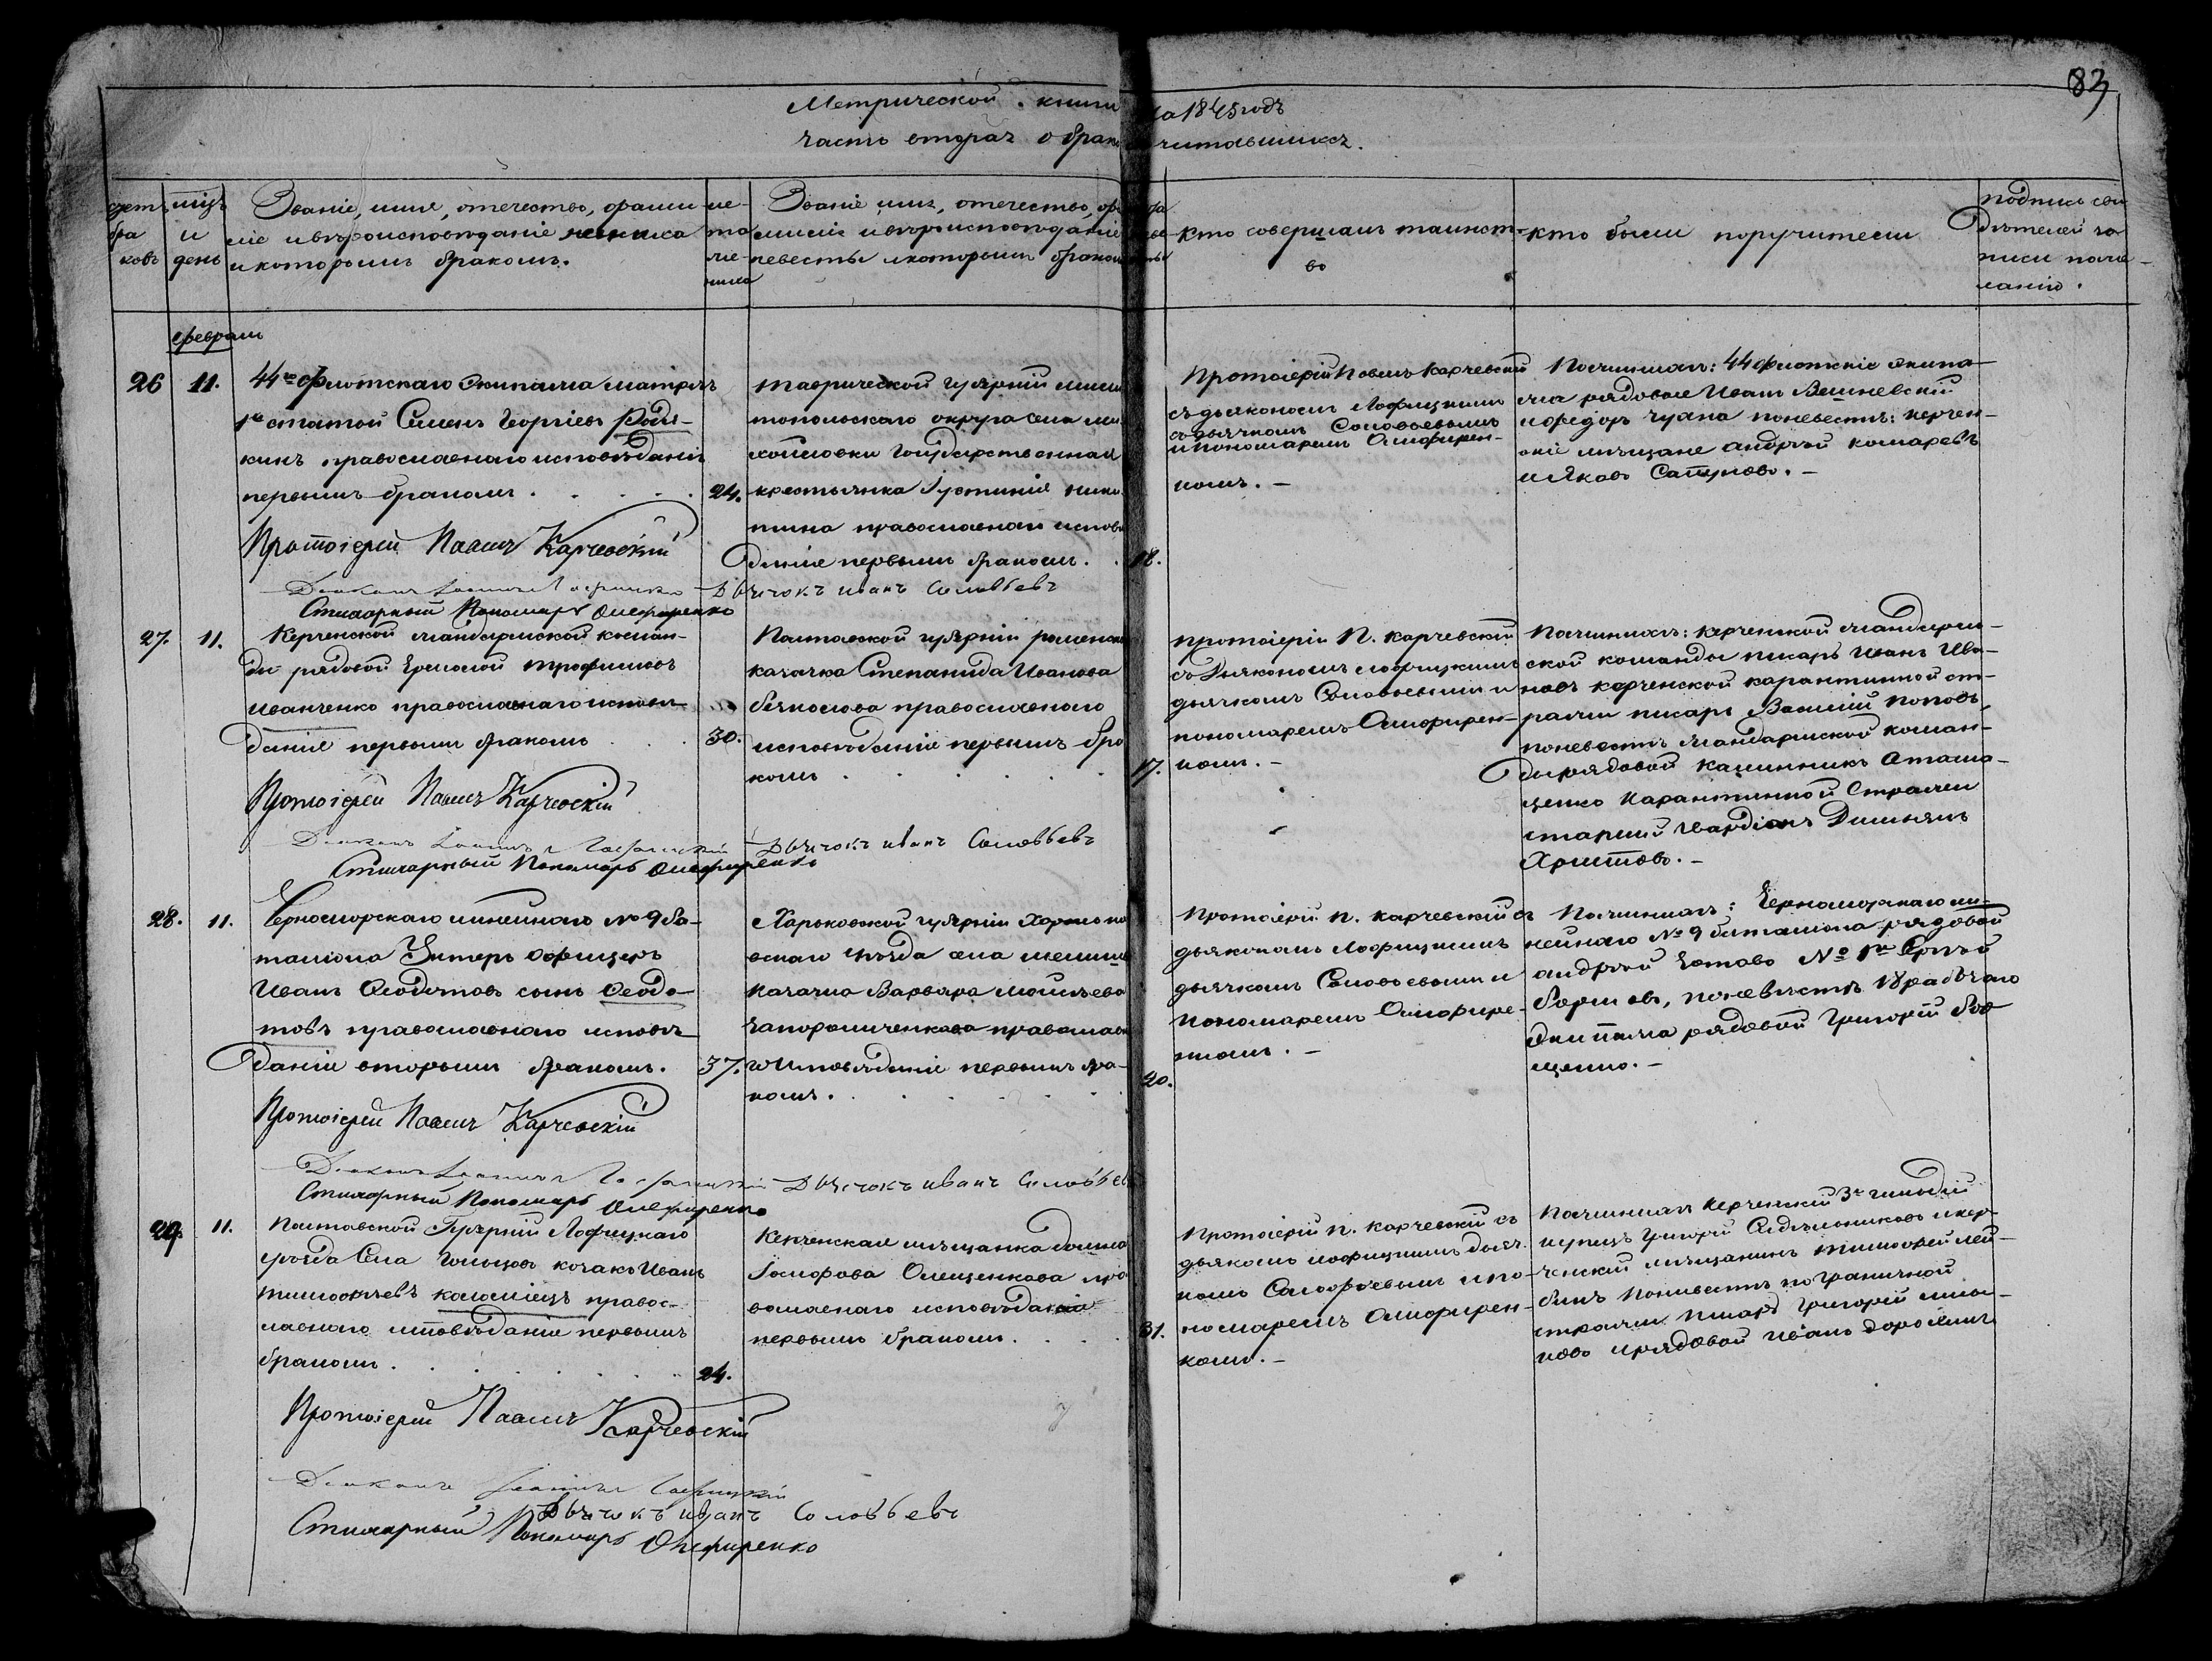 83
Метрической книги на 1845 годъ
часть вторая о бракосочитавшихся.
счетъ бра ковъ
мцъ и день
Званіе, имя, отечество, фами
ліе и вѣроисповѣданіе жениха
и которымъ бракомъ.
ле-
та
же-
ниха
Званіе имя, отечество, фа
миліе и вѣроисповѣданіе
невесты и которымъ бракомъ
кто совершалъ таинст-
во
кто были поручители
подпись сви
дѣтелей за
писи пожe-
ланію.
февраль
26 11.
44го флотскаго Экипажа матрозъ
1й статьи Семенъ Георгіевъ Родь-
кинъ православнаго исповѣданія
первымъ бракомъ . . . . 24.
Протоіерей Павелъ Карчевскій
Стихарный Пономарь Олефиренко
Таврической губерніи мели
топольскаго округа села ми
хайловки Государственная
крестьянка Іустинія Ники
тина православнаго исповѣ
даніе первымъ бракомъ. . 18.
Дьячокъ иванъ Соловьевъ
Протоіерей Павелъ Карчевскій
съ дьякономъ Лофицкимъ
съ дьячкомъ Соловьевымъ
и Пономаремъ Олефирен-
комъ. —
По женихѣ: 44 флотскіе экипа-
жа рядовые Иванъ Вешневскій
и федоръ чуяна по невестѣ: керчен-
скіе мѣщане андрѣй комаревъ
и Яковъ Сатунова. —
27. 11.
Керченской жандармской коман-
ды рядовой Ермолой трофимовъ
Иванченко православнаго исповѣ
даніе первымъ бракомъ . . . 30.
Протоіерей Павелъ Карчевскій
Стихарный Пономарь Олефиренко
Полтавской губерніи роменска
казачка Степанида Иванова
православнаго
исповѣданіе первымъ бра
комъ . . . . . 17.
Дьячокъ иванъ Соловьевъ
протоіерій П. Карчевскій
съ дьякономъ лофицкимъ
дьячкомъ Соловьевымъ и
пономаремъ Олефирен-
комъ. —
По женихѣ: керченской жандарм-
ской команды писарь Иванъ Ива-
новъ керченской карантинной ст-
ражи писарь Василій поповъ,
по невестѣ жандармской коман-
ды рядовой Калинникъ Аташа-
ценко Карантинной Стражи
старшій Гвардіонъ Дишнянъ
Христовъ. —
28. 11.
Черноморскаго линейнаго № 9 ба-
таліона Унтеръ Офицеръ
Иванъ Феодотовъ сынъ Феодо-
товъ православнаго исповѣ
даніе вторымъ бракомъ. 37.
Протоіерей Павелъ Карчевскій
Стихарный Пономарь Олефиренко
Харьковской губерніи
скаго уѣзда села
казачка Варвара Моисѣева
Запорощенкова православна
го исповѣданіе первымъ бра-
комъ. . . . . . 20.
Дьячокъ иванъ Соловьев
Протоіерій П. Карчевскій съ
дьякономъ Лофицкимъ
дьячкомъ Соловьевымъ и
Пономаремъ Олефире-
нкомъ. —
По женихѣ: Черноморскаго ли-
нейнаго № 9 баталіона рядовой
андрѣй Котовъ № 1й Сергѣй
Борисовъ, по невѣстѣ 18 рабочаго
экипажа рядовой Григорій Бов-
щенко. —
29. 11.
Полтавской Губерніи Лофицкаго
уѣзда Села Гольцовъ козакъ Иванъ
тимофѣевъ каломіецъ правос-
лавнаго исповѣданіе первымъ
бракомъ. . . . . . 24.
Протоіерей Павелъ Карчевскій
Дьячокъ иванъ Соловьевъ
Стихарный Пономарь Олефиренко
Керченская мѣщанка домна
Олещенкова пра
вославнаго исповѣданія
первымъ бракомъ. . . . 31.
Протоіерій П. Карчевскій съ
дьякономъ лофицкимъ дьяч-
комъ Соловьевымъ и по-
номаремъ Олефирен-
комъ. —
По женихѣ Керченскій 3й гильдіи
купецъ Григорій Сидѣльниковъ и кер-
ченскій мѣщанинъ тимофей лей-
бинъ По невестѣ пограничной
стражи писарь Григорій
новъ и рядовой Иванъ дорохинъ